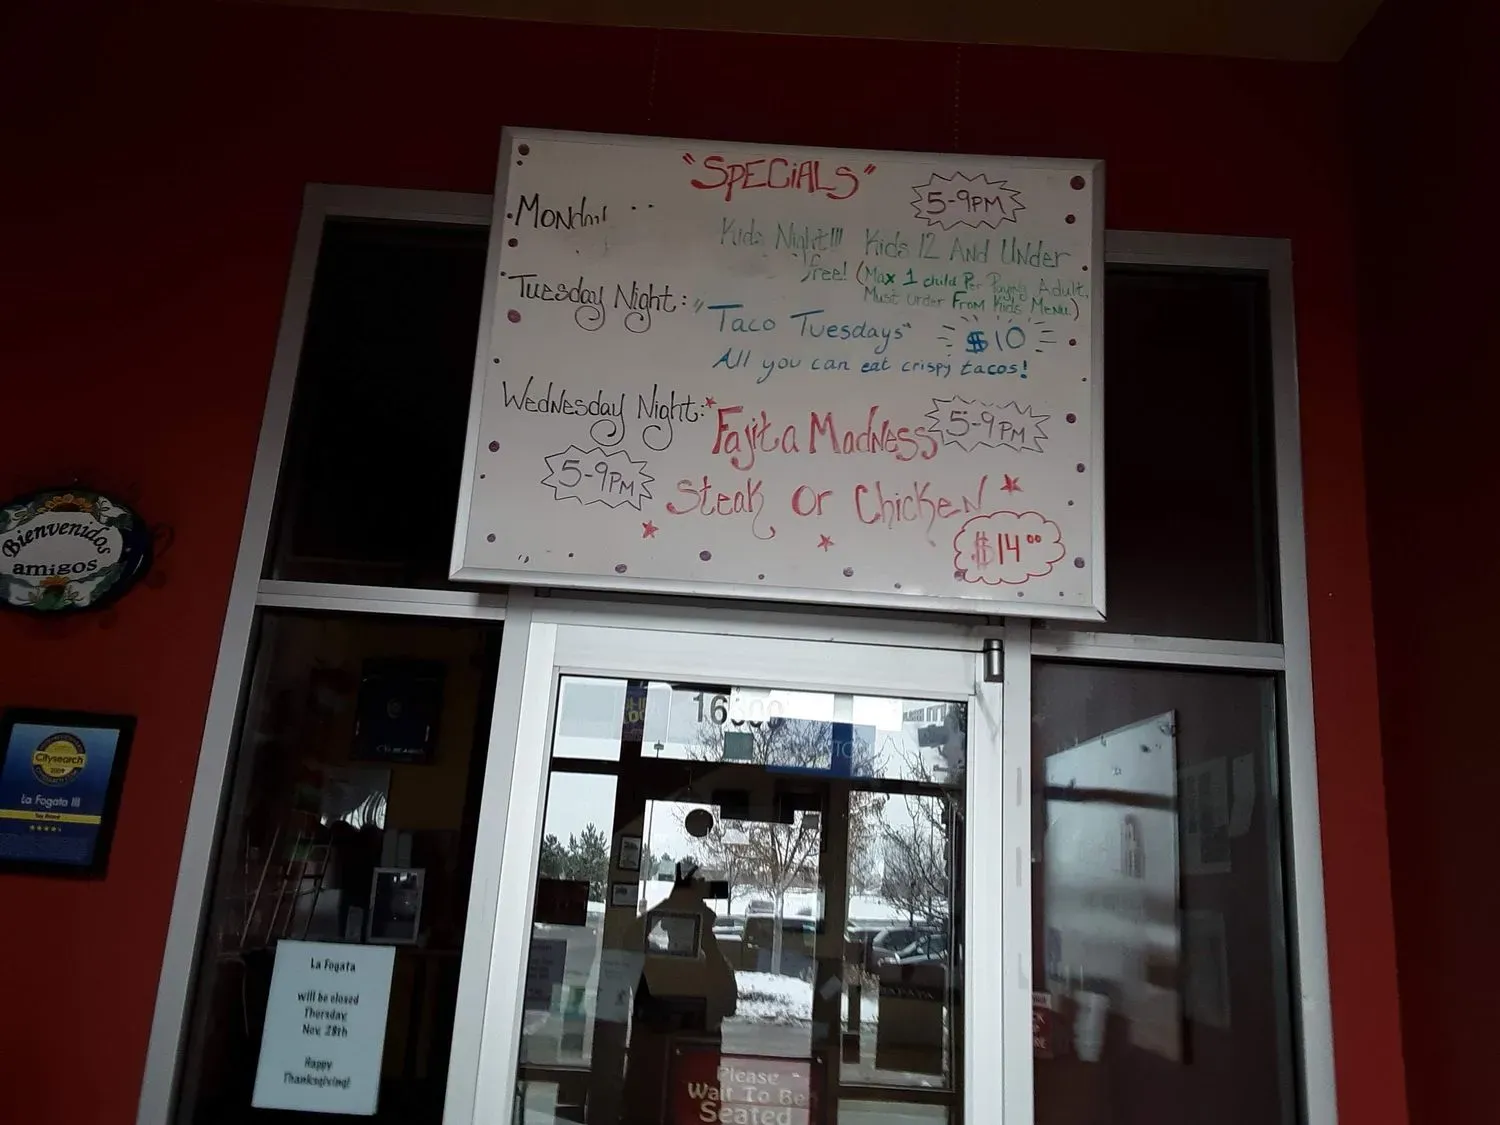 "SPECiALS"
5-9PM
Monday
Kids Night!!! Kids 12 And Under
free! (Max 1 child Per Paying Adult,
Must order From Kids Menu.)
Tuesday Night: "Taco Tuesdays" $10
All you can eat crispy tacos!
Wednesday Night: Fajita Madness 5-9PM
5-9PM
Steak or Chicken
$14.00
Bienvenidos
amigos
Citysearch
La Fogata III
La Fogata
will be closed
Thursday
Nov. 28th
Happy
Thanksgiving!
Please
Wait To Be
Seated